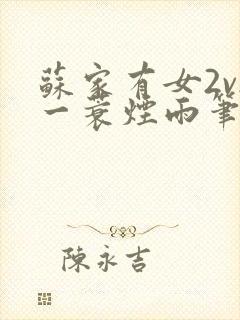 蘇家有女2v
一蓑煙雨筆
陳永吉